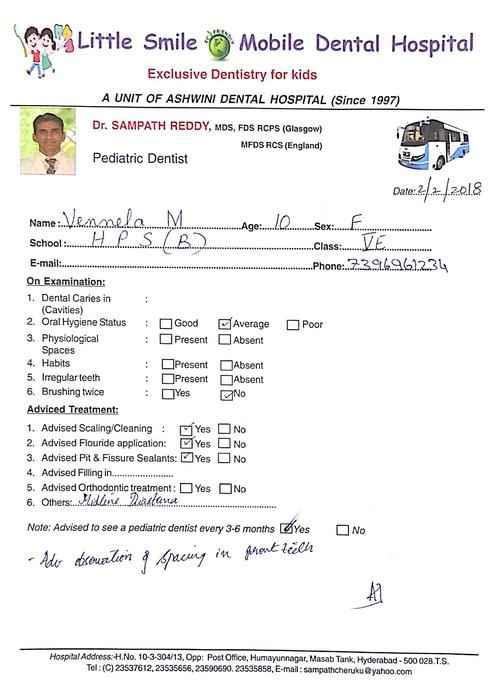 Little Smile Mobile Dental Hospital
Exclusive Dentistry for kids
A UNIT OF ASHWINI DENTAL HOSPITAL (Since 1997)
Dr. SAMPATH REDDY, MDS, FDS RCPS (Glasgow)
MFDS RCS (England)
Pediatric Dentist
Date: 2/2/2018
Name: Vennela M Age: 10 Sex: F
School: H P S (B) Class: VE
E-mail: Phone: 7396961234
On Examination:
1. Dental Caries in :
(Cavities)
2. Oral Hygiene Status : Good Average Poor
3. Physiological : Present Absent
Spaces
4. Habits : Present Absent
5. Irregular teeth : Present Absent
6. Brushing twice : Yes No
Adviced Treatment:
1. Advised Scaling/Cleaning : Yes No
2. Advised Flouride application: Yes No
3. Advised Pit & Fissure Sealants: Yes No
4. Advised Filling in
5. Advised Orthodontic treatment: Yes No
6. Others: Midline Diastema
Note: Advised to see a pediatric dentist every 3-6 months Yes No
- Adv observation of spacing in front teeth
Hospital Address:-H.No. 10-3-304/13, Opp: Post Office, Humayunnagar, Masab Tank, Hyderabad - 500 028.T.S.
Tel : (C) 23537612, 23535656, 23590690. 23535858, E-mail : sampathcheruku@yahoo.com